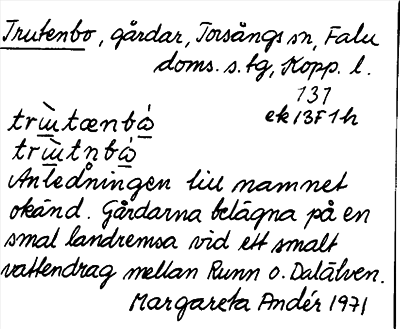 Trutenbo, gårdar, Torsångs sn, Falu
doms. s. tg, Kopp. l.
131
ek 13F1h
trɯ̀tænbɷ́
trɯ̀tn̥bɷ́
Anledningen till namnet
okänd. Gårdarna belägna på en
smal landremsa vid ett smalt
vattendrag mellan Runn o. Dalälven.
Margareta Andér 1971